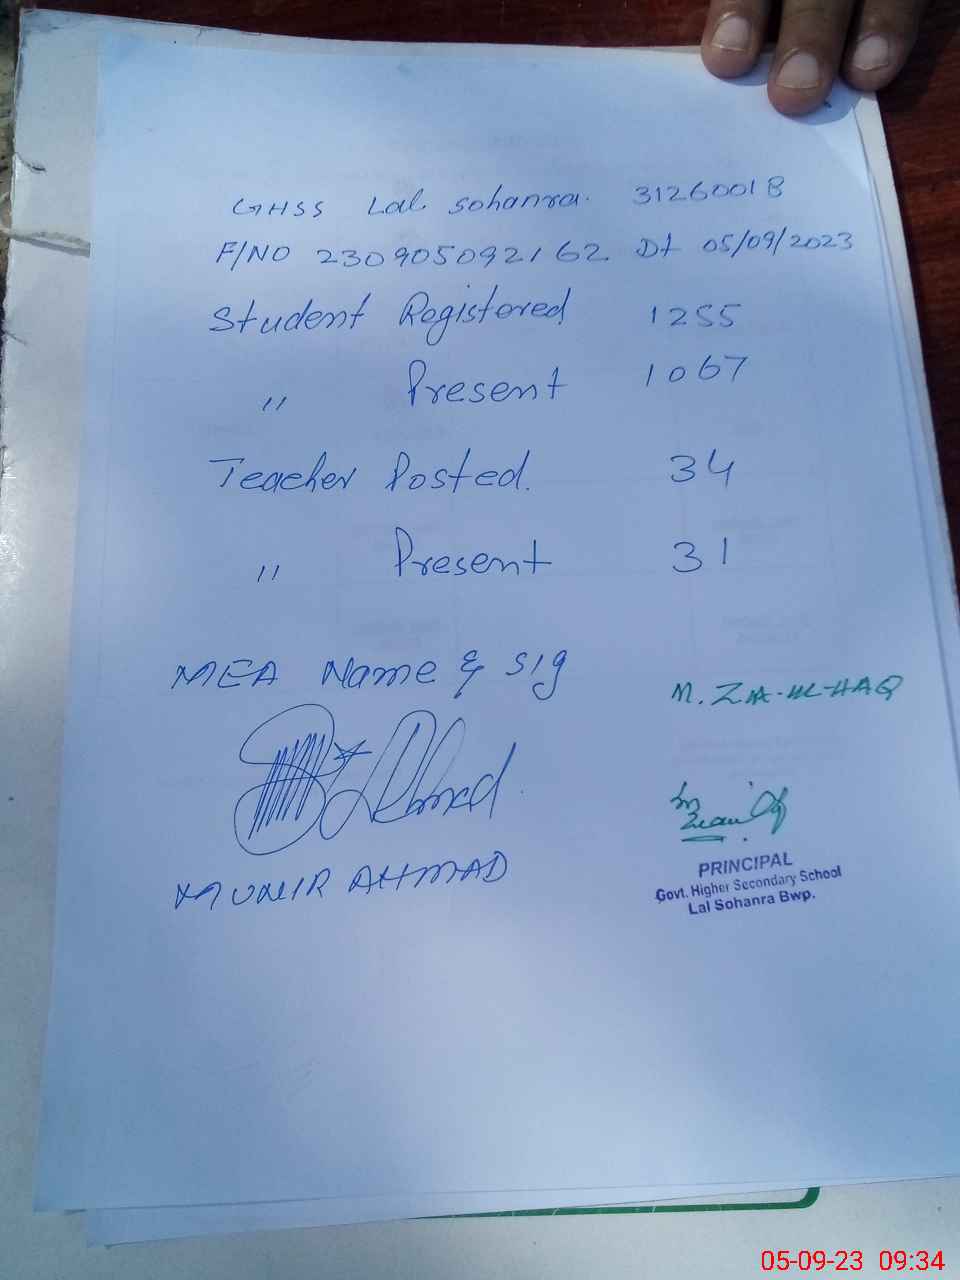 GHSS Lal Sohanra. 31260018
F/NO 230905092162 Dt 05/09/2023
Student Registered 1255
" Present 1067
Teacher Posted. 34
" Present 31
MEA Name & Sig
M. ZIA-UL-HAQ
Ahmad
MUNIR AHMAD
PRINCIPAL
Govt. Higher Secondary School
Lal Sohanra Bwp.
05-09-23 09:34